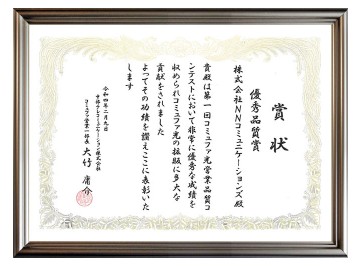 賞状
優秀品質賞
株式会社NNコミュニケーションズ殿
貴殿は第一回コミュファ光営業品質コ
ンテストにおいて非常に優秀な成績を
収められコミュファ光の拡販に多大な
貢献をされました
よってその功績を讃えここに表彰いた
します
令和四年二月九日
中部テレコミュニケーション株式会社
コミュファ営業一部長 大竹庸介